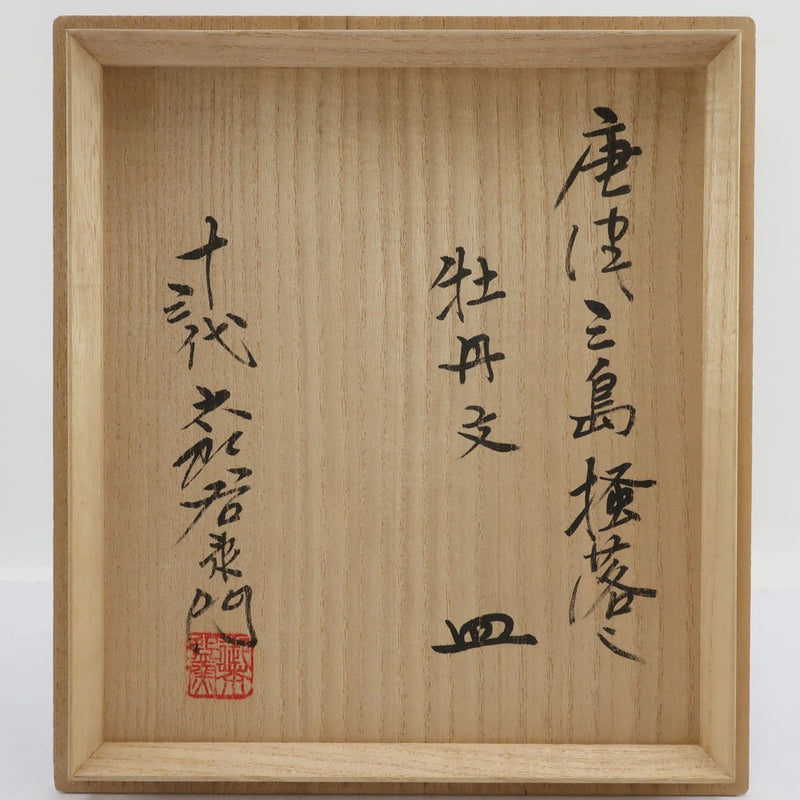 唐津三島掻落し
牡丹文
皿
十三代太郎右衛門